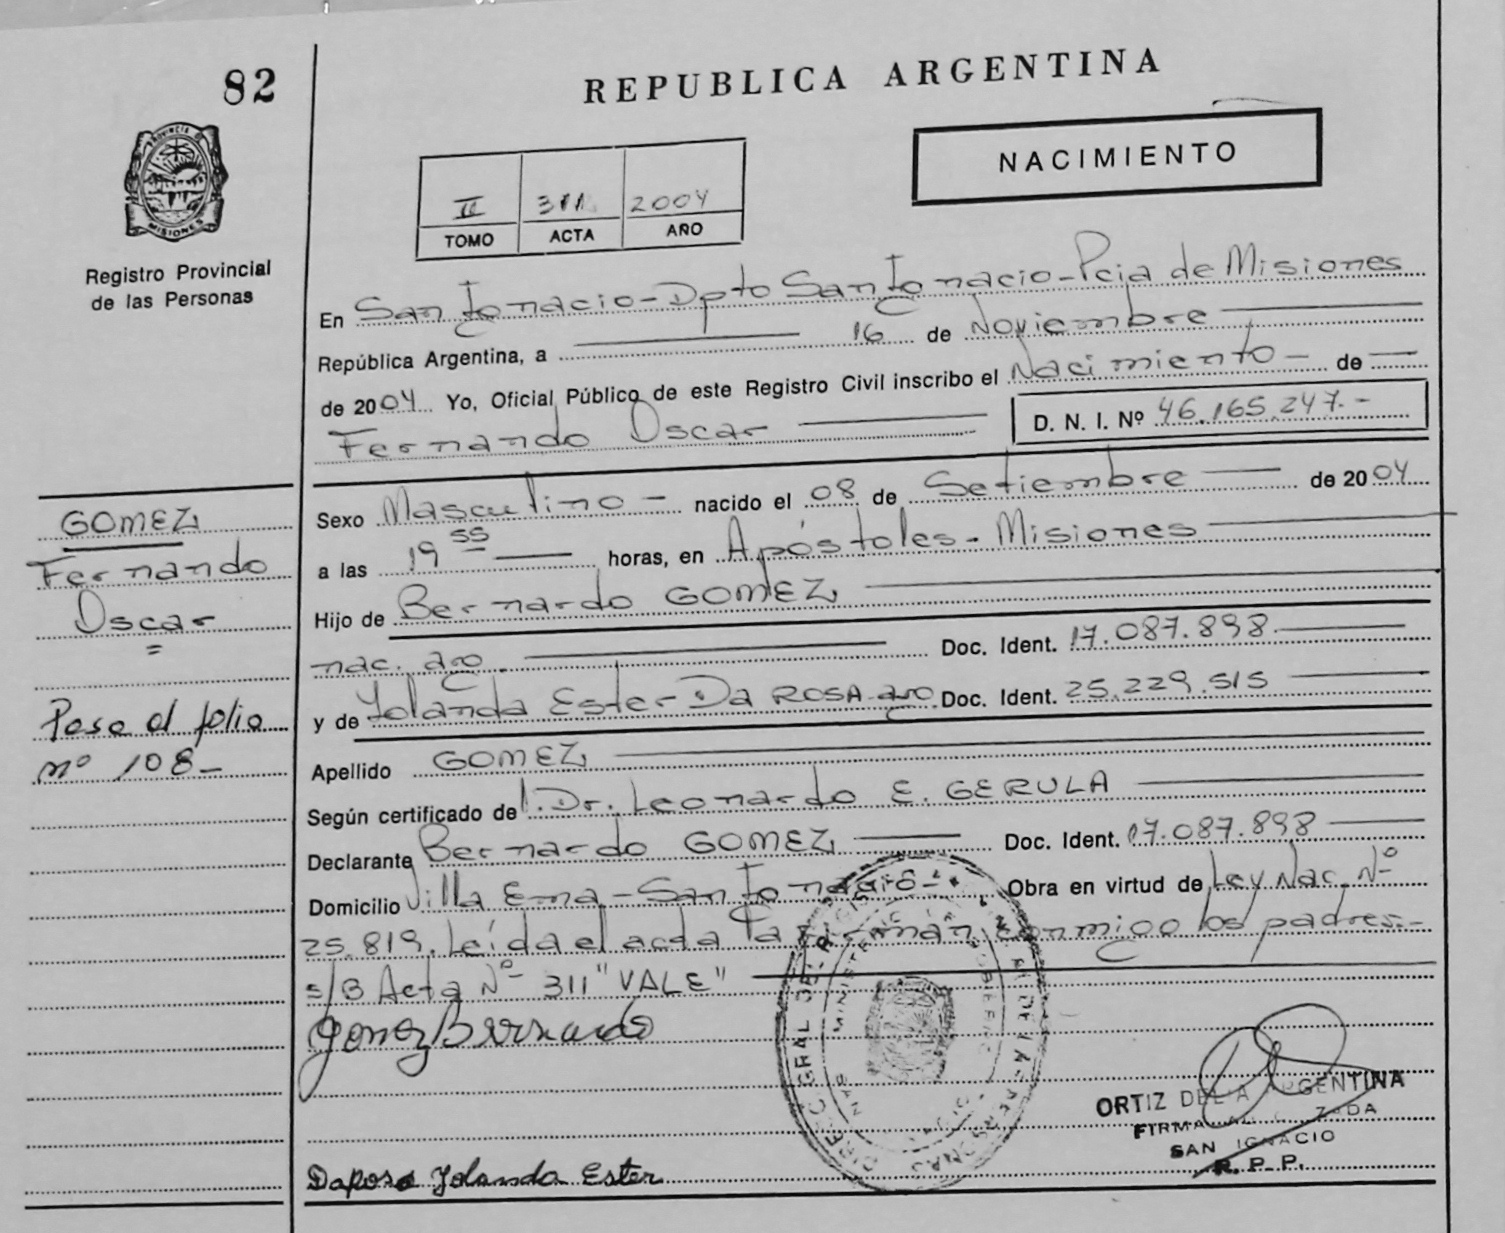 82
REPUBLICA ARGENTINA
NACIMIENTO
PROVINCIA DE
MISIONES
Registro Provincial
de las Personas
II 2004
TOMO ACTA AÑO
En San Ignacio - Dpto San Ignacio - Pcia de Misiones
República Argentina, a 16 de Noviembre
de 2004 Yo, Oficial Público de este Registro Civil inscribo el Nacimiento - de
Fernando Oscar
D. N. I. Nº 46.165.247.-
GOMEZ
Fernando
Oscar
=
Pasa al folio
nº 108-
Sexo Masculino - nacido el 08 de Setiembre de 2004
a las 19 55 horas, en Apóstoles - Misiones
Hijo de Bernardo GOMEZ
nac. arg. Doc. Ident. 17.087.898.
y de Yolanda Ester Da ROSA arg. Doc. Ident. 25.229.515
Apellido GOMEZ
Según certificado del. Dr. Leonardo E. GERULA
Declarante Bernardo GOMEZ Doc. Ident. 17.087.898
Domicilio Villa Ema - San Ignacio - Obra en virtud de Ley Nac. Nº
25.819. Leída el acta la firman conmigo los padres.-
s/B Acta Nº 311 "VALE"
Gomez Bernardo
ORTIZ DELIA ARGENTINA
FIRMA
SAN IGNACIO
R. P. P.
Darosa Yolanda Ester